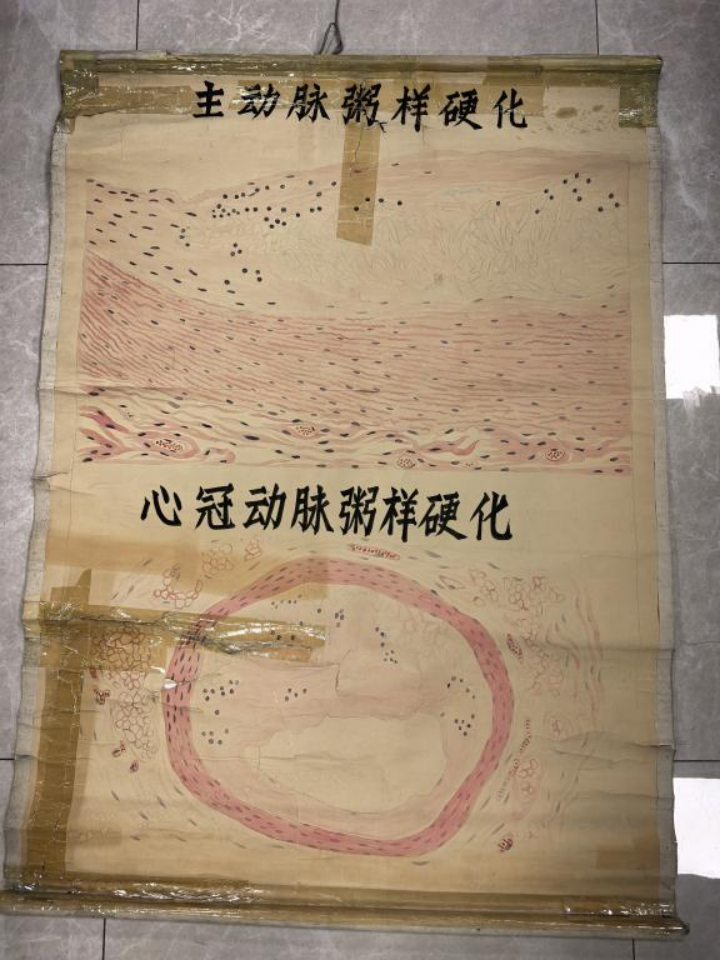 主动脉粥样硬化
心冠动脉粥样硬化